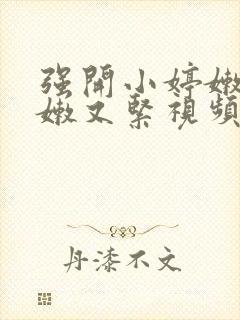 强開小婷嫩
嫩又緊視頻
丹漆不文